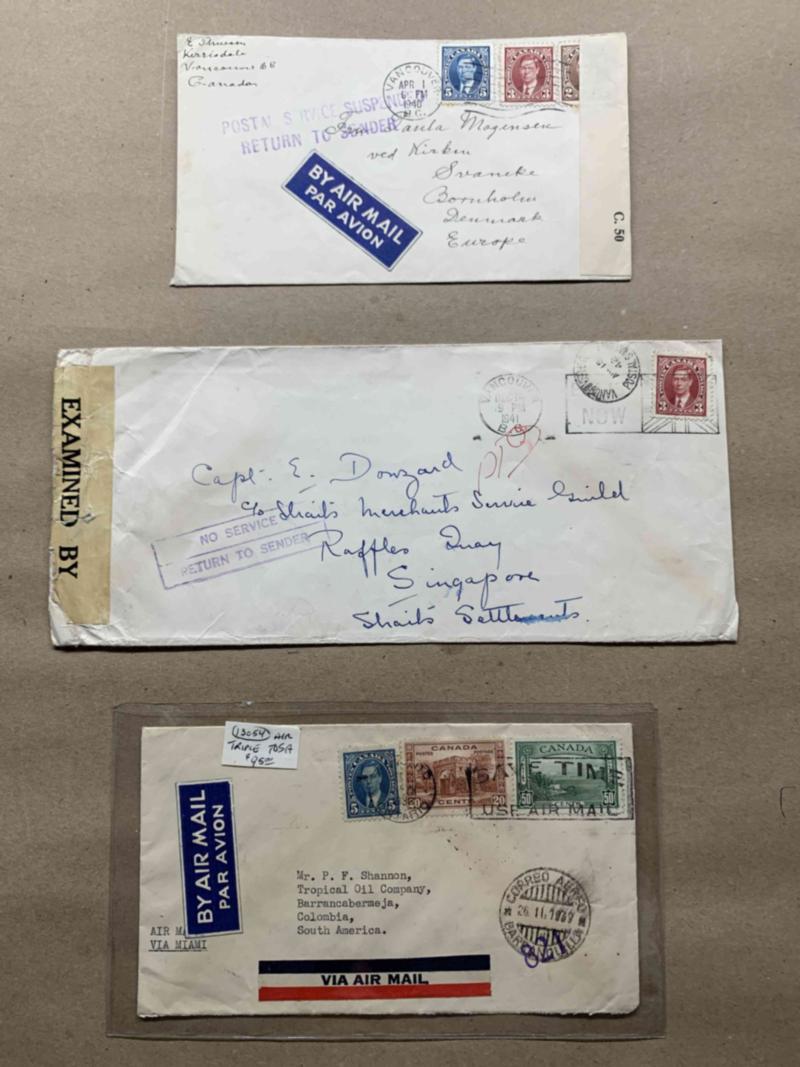 Kerrisdale
Vancouver BC
Canada
VANCOUVER
APR 1
6 PM
1940
B.C.
CANADA
5 5
3 3
2
POSTAL SERVICE SUSPENDED
RETURN TO SENDER
Paula Mogensen
ved Kirken
Svaneke
Bornholm
Denmark
Europe
BY AIR MAIL
PAR AVION
C. 50
EXAMINED BY
VANCOUVER
PM
1941
B.C.
NOW
CANADA
3 3
Capt. E. Dowzard
c/o Straits Merchants Service Guild
Raffles Quay
Singapore
Straits Settlements.
NO SERVICE
RETURN TO SENDER
13054 AIR
TRIPLE TO SA
$95.00
CANADA
5 5
CANADA
POSTES POSTAGE
20 CENTS 20
CANADA
50 50
ONTARIO
SAVE TIME
USE AIR MAIL
BY AIR MAIL
PAR AVION
Mr. P. F. Shannon,
Tropical Oil Company,
Barrancabermeja,
Colombia,
South America.
AIR MA
VIA MIAMI
CORREO AEREO
26. II. 1939
BARRANQUILLA
821
VIA AIR MAIL